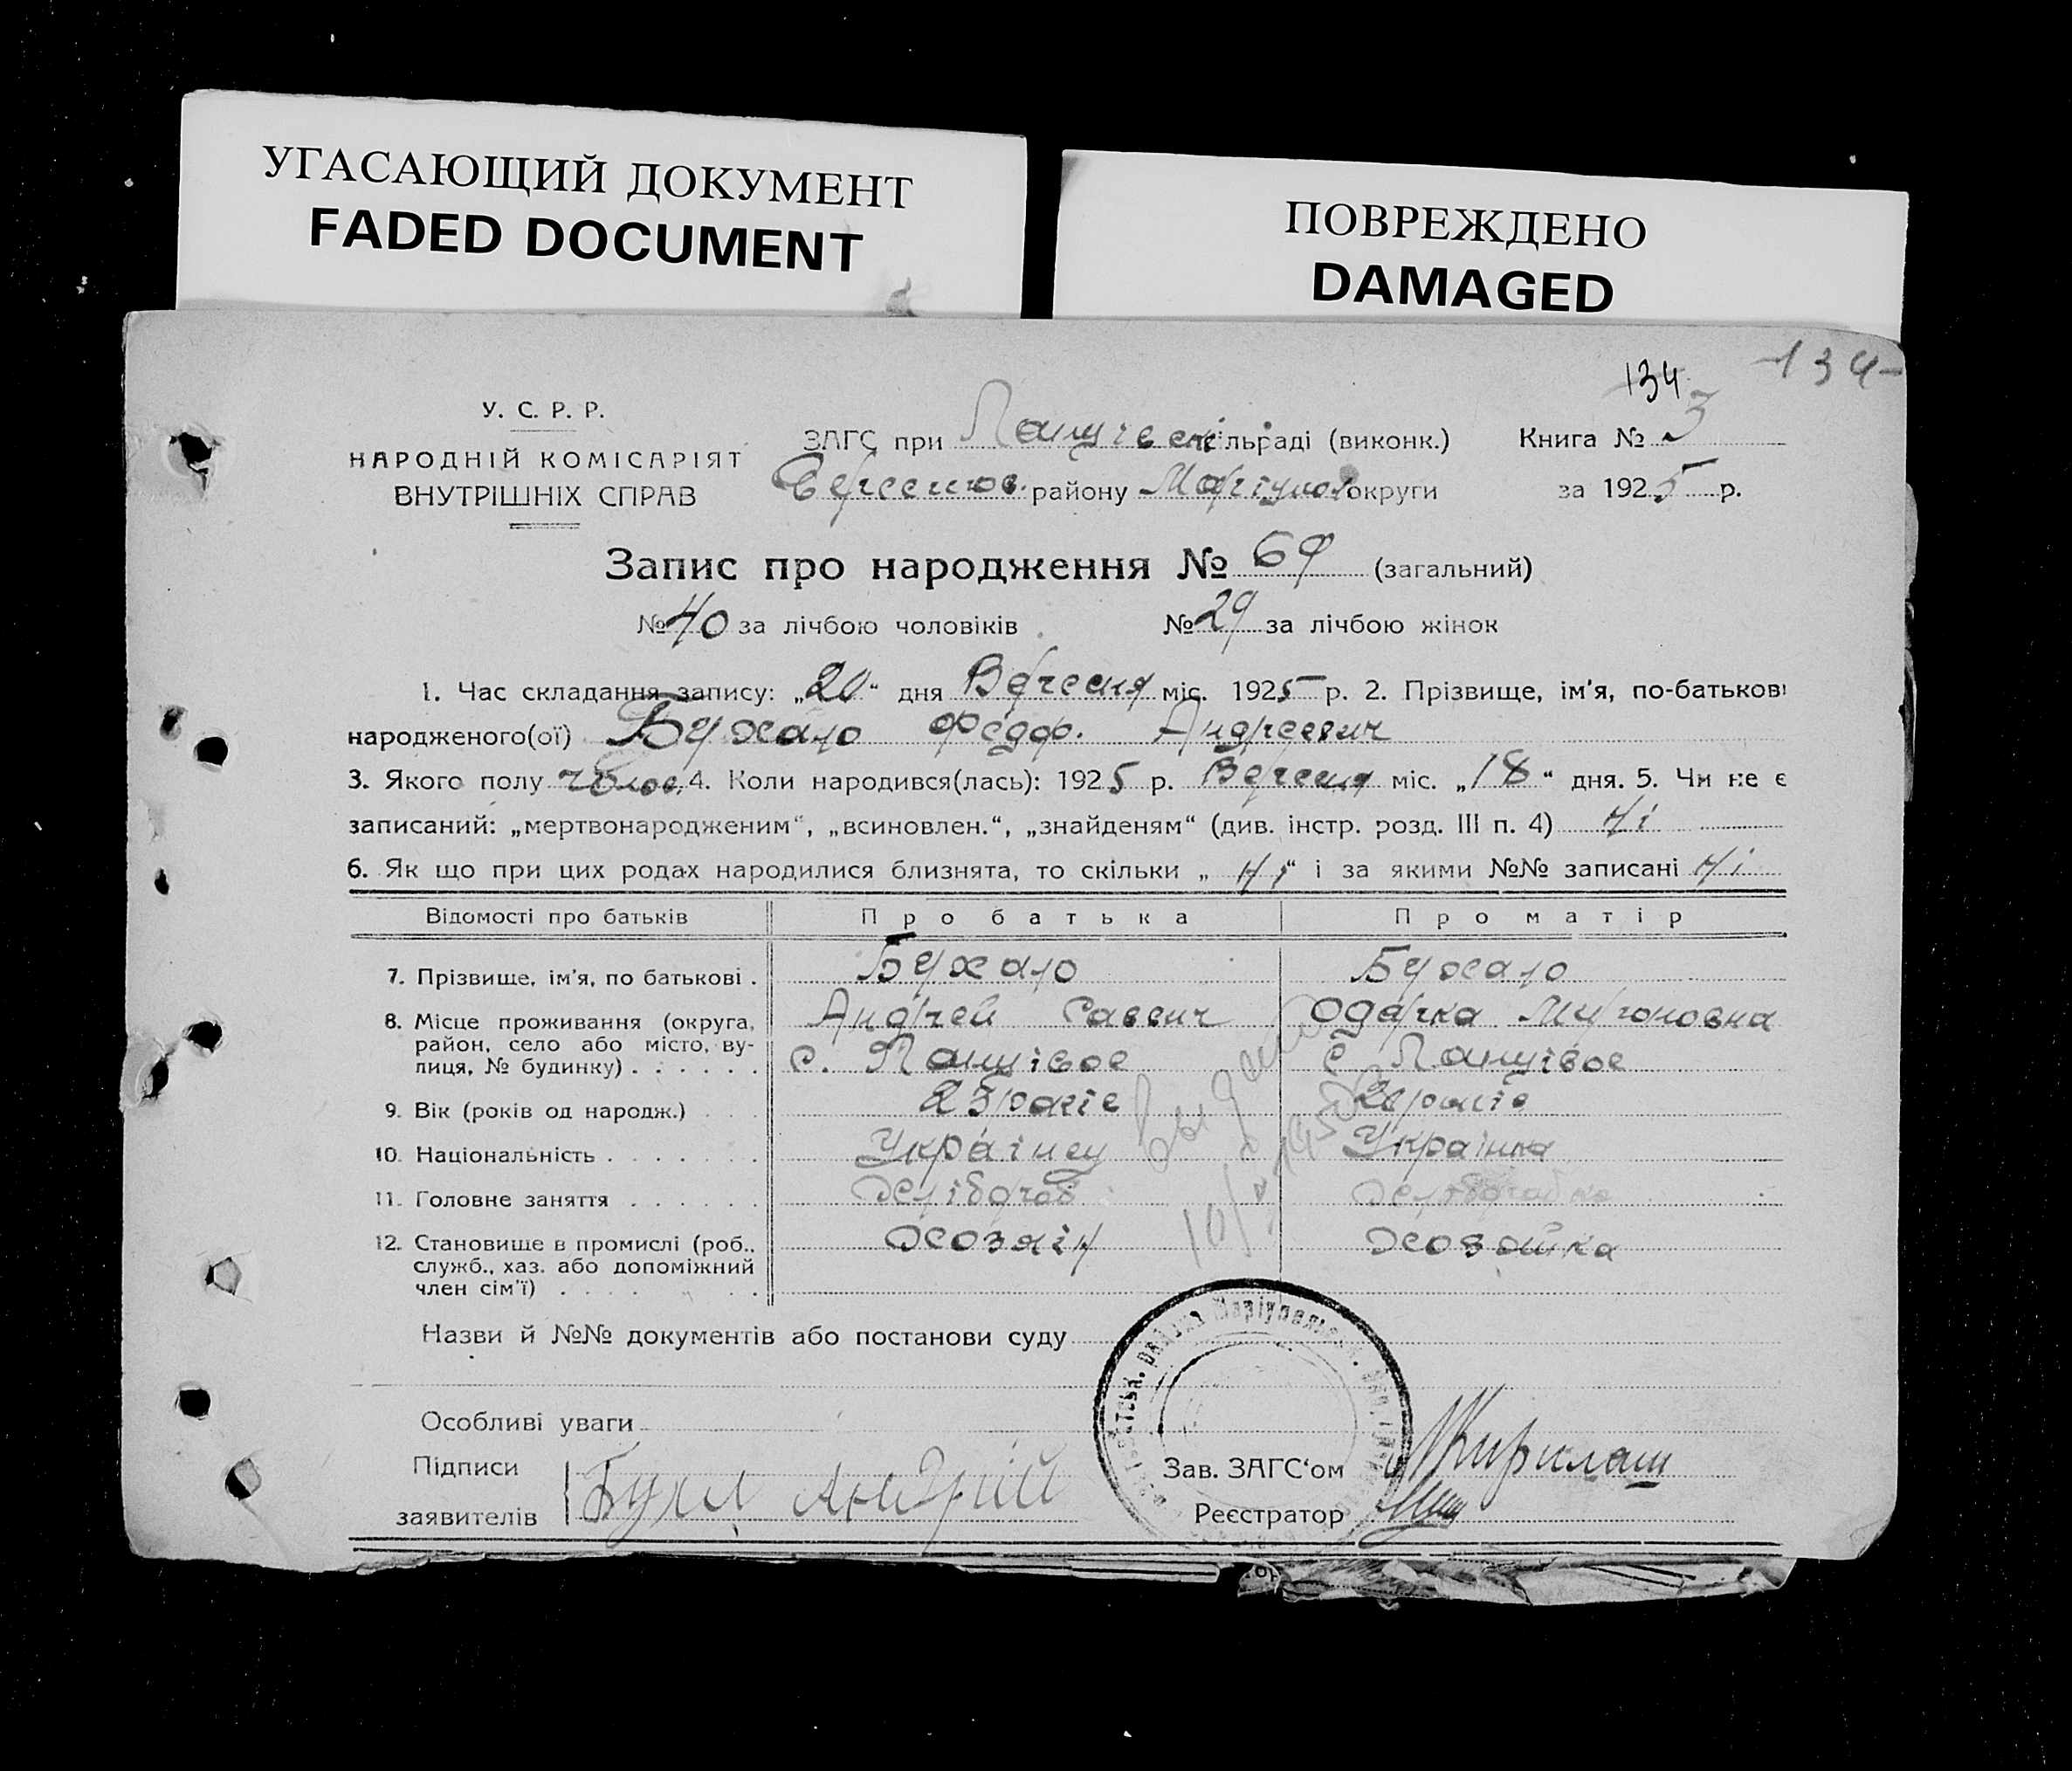 УГАСАЮЩИЙ ДОКУМЕНТ
FADED DOCUMENT
ПОВРЕЖДЕНО
DAMAGED
134
134
У. С. Р. Р.
НАРОДНІЙ КОМІСАРІЯТ
ВНУТРІШНІХ СПРАВ
ЗАГС при сільраді (виконк.) Книга № 3
району Маріупол округи за 1925 р.
Запис про народження № 69 (загальний)
№ 40 за лічбою чоловіків № 29 за лічбою жінок
1. Час складання запису: „20“ дня Вересня міс. 1925 р. 2. Прізвище, ім’я, по-батькові
народженого(ої) Бухало Федор. Андреевич
3. Якого полу чолов. 4. Коли народився(лась): 1925 р. Вересня міс. „18“ дня. 5. Чи не є
записаний: „мертвонародженим“, „всиновлен.“, „знайденям“ (див. інстр. розд. III п. 4) Ні
6. Як що при цих родах народилися близнята, то скільки „Ні“ і за якими №№ записані Ні
Відомості про батьків Про батька Про матір
7. Прізвище, ім’я, по батькові . Бухало Бухало
8. Місце проживання (округа, район, село або місто, вулиця, № будинку) . . . . . . Андрей Савеич Одарка
с. с.
9. Вік (років од народж.) . . . 23 років років
10. Національність . . . . . . . Українец Українка
11. Головне заняття . . . . . . Хлібороб
12. Становище в промислі (роб., служб., хаз. або допоміжний член сім’ї) . . . . . . Хозяїн Хозяйка
Выдано
Назви й №№ документів або постанови суду
Особливі уваги
Підписи
заявителів Андрій
Зав. ЗАГС‘ом
Реєстратор